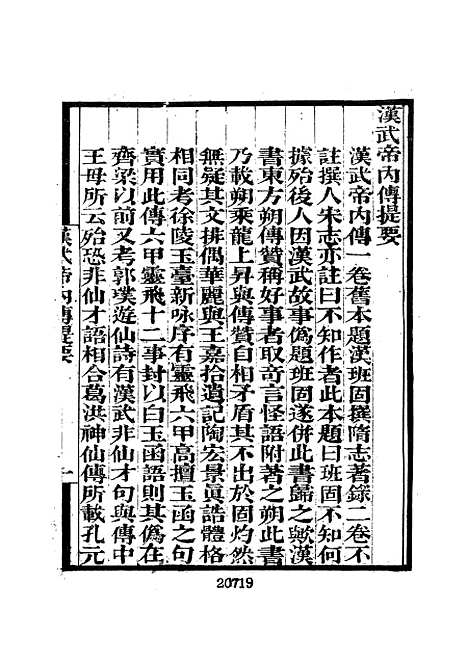 漢武帝內傳提要
漢武帝內傳一卷舊本題漢班固撰隋志著錄二卷不
註撰人宋志亦註曰不知作者此本題曰班固不知何
據殆後人因漢武故事偽題班固遂併此書歸之歟漢
書東方朔傳贊稱好事者取奇言怪語附著之朔此書
乃載朔乘龍上昇與傳贊自相矛盾其不出於固灼然
無疑其文排偶華麗與王嘉拾遺記陶宏景眞誥體格
相同考徐陵玉臺新咏序有靈飛六甲高擅玉函之句
實用此傳六甲靈飛十二事封以白玉函語則其偽在
齊梁以前又考郭璞遊仙詩有漢武非仙才句與傳中
王母所云殆恐非仙才語相合葛洪神仙傳所載孔元
漢武帝內傳提要
一
20719